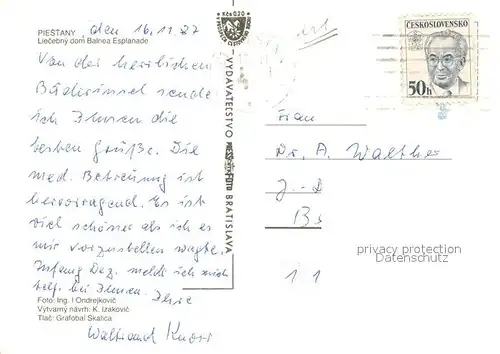 PIEŠŤANY, den 16.11.87
Liečebný dom Balnea Esplanade
Von der herrlichen
Bäderinsel sende
ich Ihnen die
besten Grüße. Die
med. Betreuung ist
hervorragend. Es ist
viel schöner als ich es
mir vorzustellen wagte.
Anfang Dez. meld ich mich
telf. bei Ihnen. Ihre
Foto: Ing. I Ondrejkovič
Výtvarný návrh: K. Izakovič
Tlač: Grafobal Skalica
Waltraud Knorr
Kčs 0,20
VYDAVATEĽSTVO
BRATISLAVA
ČESKOSLOVENSKO
50h
Frau
Dr. A. Walther
privacy protection
Datenschutz
11